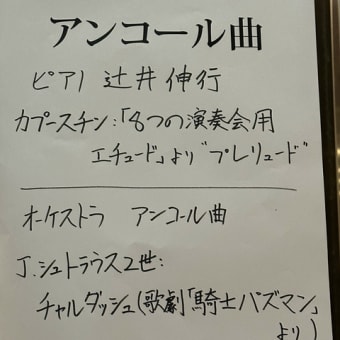 アンコール曲
ピアノ 辻井伸行
カプースチン:「8つの演奏会用
エチュード」より"プレリュード"
オーケストラ アンコール曲
J.シュトラウス2世:
チャルダッシュ(歌劇「騎士パズマン」
より)